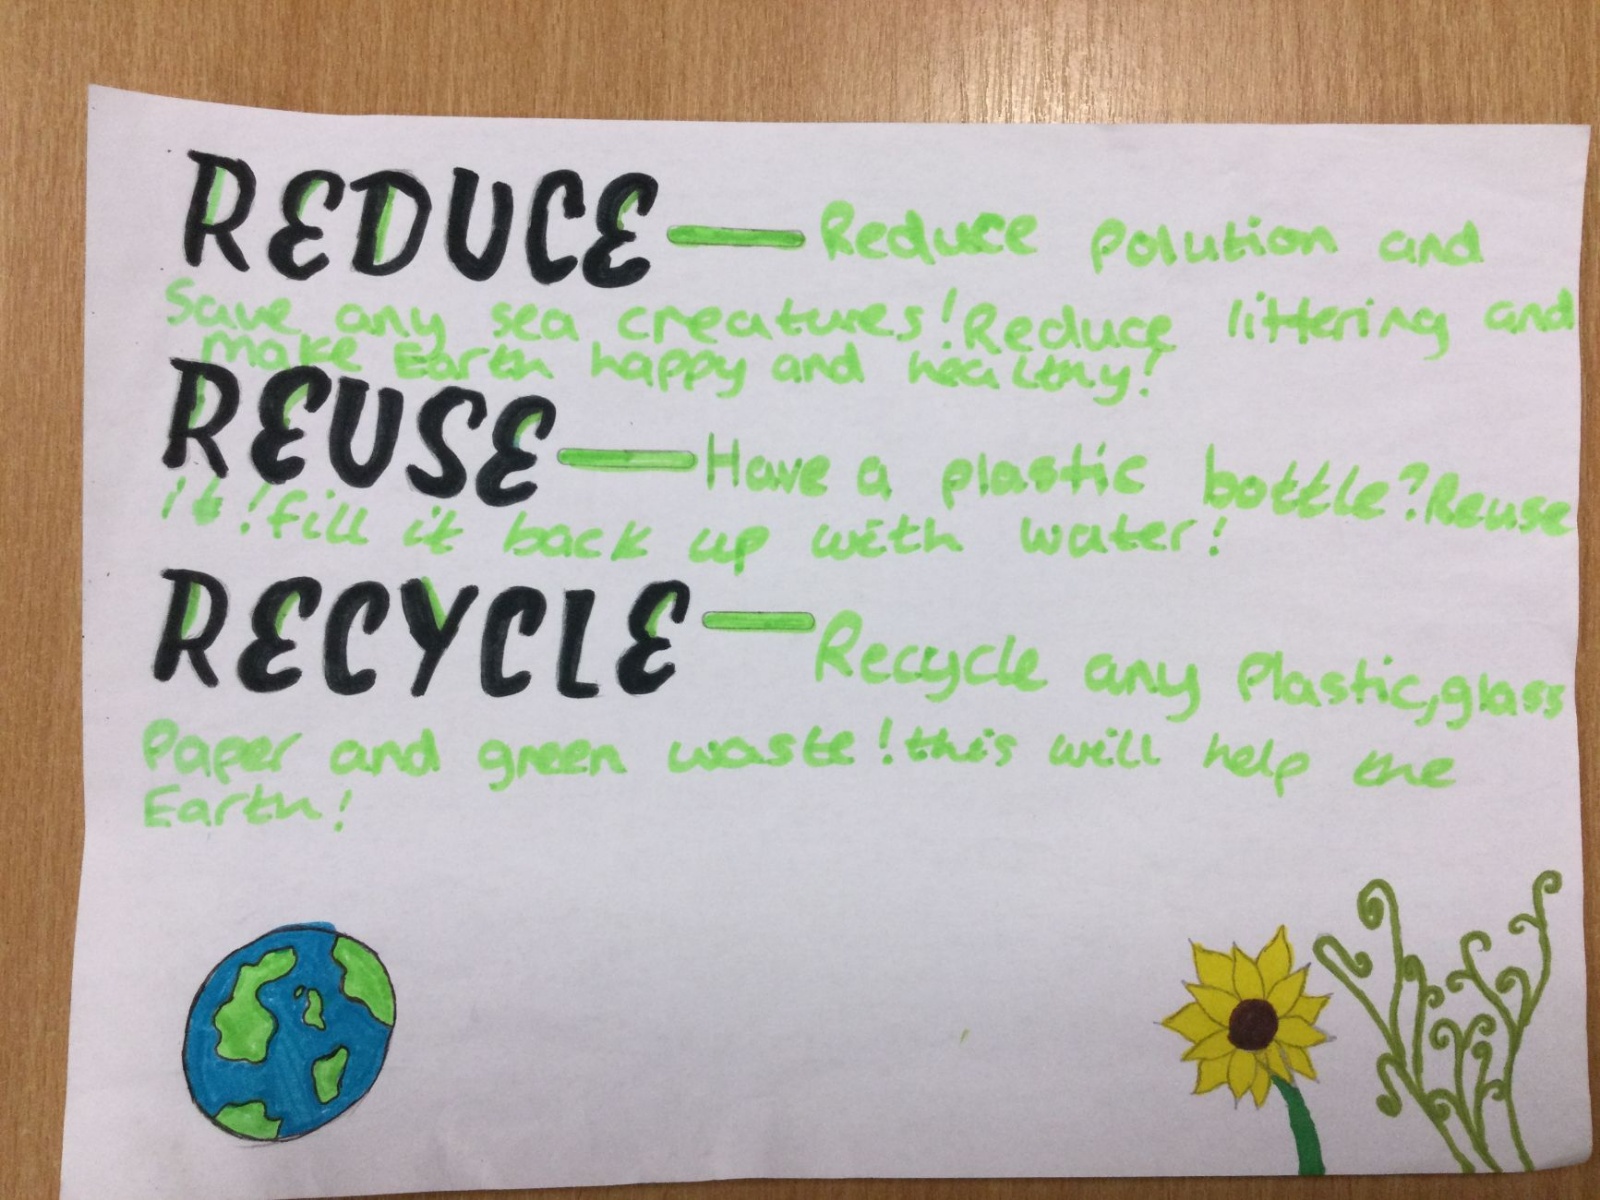 REDUCE — Reduce polution and
Save any sea creatures! Reduce littering and
make Earth happy and healthy!
REUSE — Have a plastic bottle? Reuse
it! fill it back up with water!
RECYCLE — Recycle any Plastic, glass
Paper and green waste! this will help the
Earth!